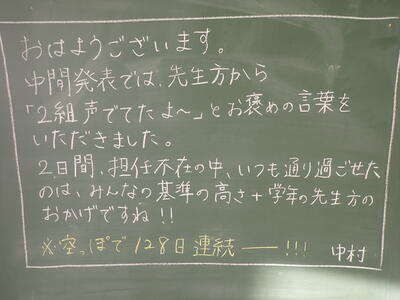 おはようございます。
中間発表では、先生方から
「2組声でてたよ〜」とお褒めの言葉を
いただきました。
2日間、担任不在の中、いつも通り過ごせた
のは、みんなの基準の高さ+学年の先生方の
おかげですね!!
※空っぽで128日連続――!!! 中村